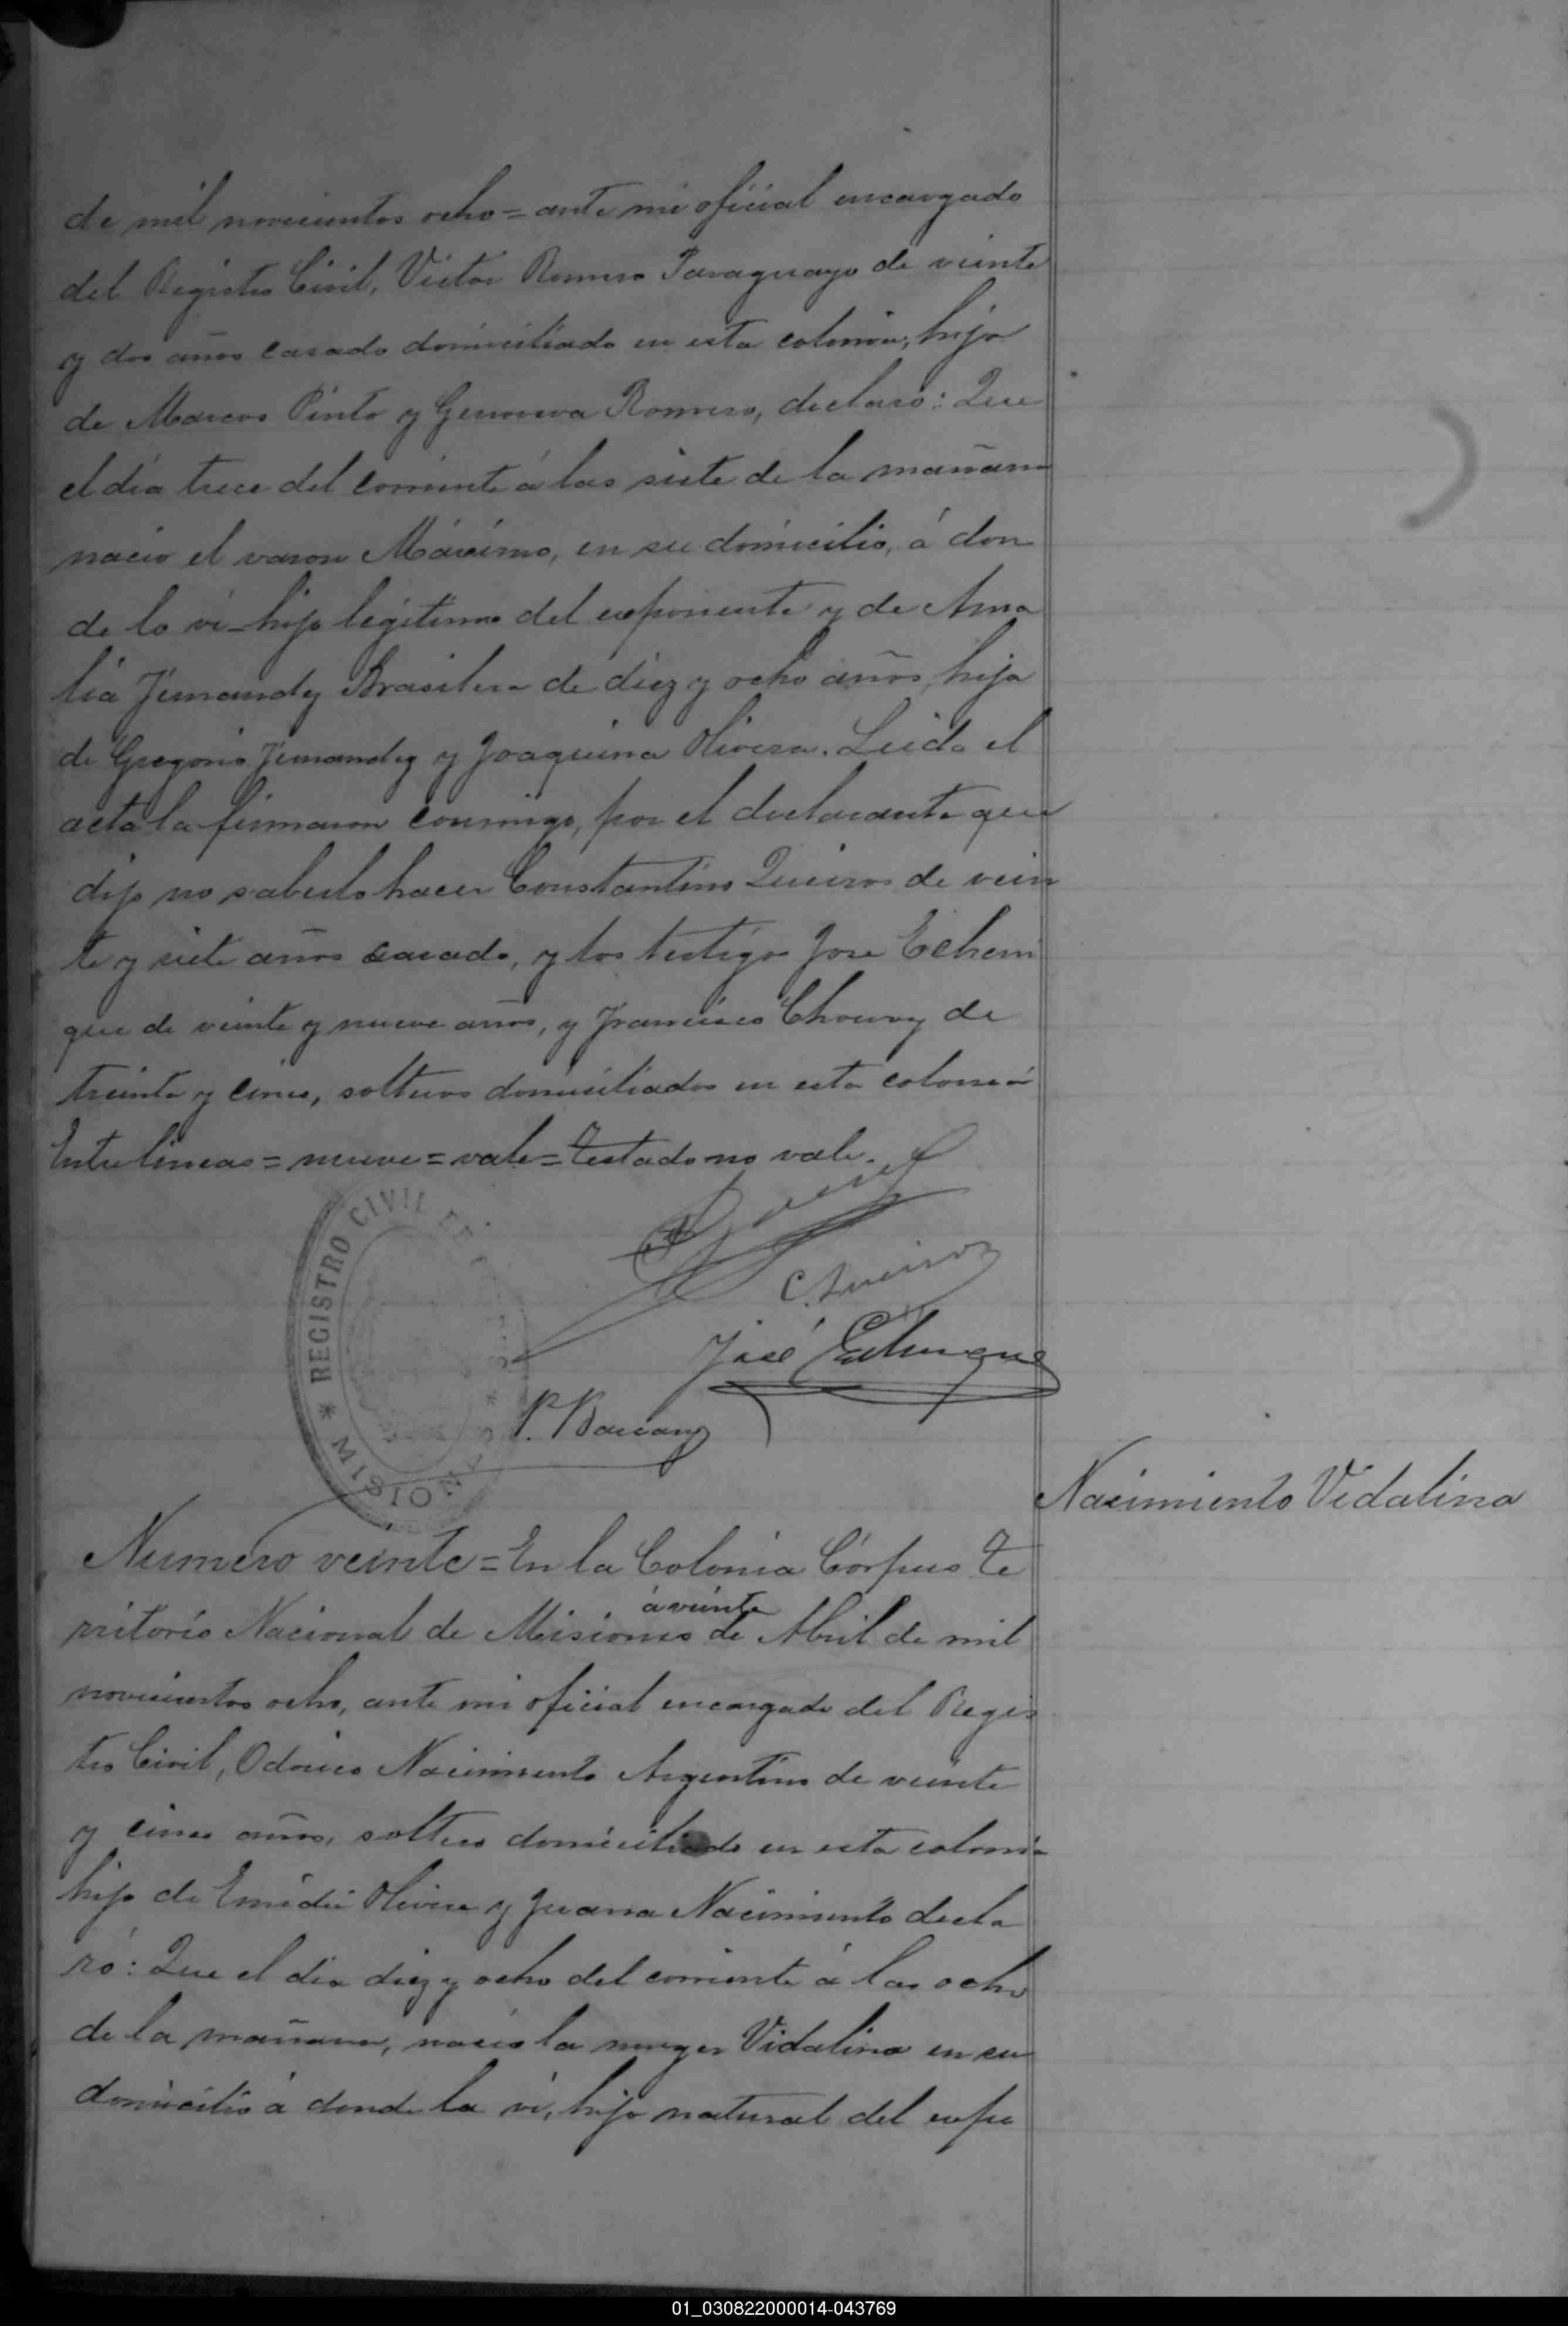 de mil novecientos ocho = ante mi oficial encargado
del Registro Civil, Victor Romero Paraguayo de veinte
y dos años casado domiciliado en esta colonia, hijo
de Marcos Pinto y Genoveva Romero, declaró: Que
el día trece del corriente á las siete de la mañana
nacio el varon Máximo, en su domicilio, á don
de lo ví _ hijo legítimo del exponente y de Ama
lia Fernandez Brasilera de diez y ocho años, hija
de Gregorio Fernandez y Joaquina Olivera. Leida el
acta la firmaron conmigo, por el declarante que
dijo no saberlo hacer Constantino Queiros de vein
te y siete años casado, y los testigos Jose Echeni
que de veinte y nueve años, y Francisco Chouvy de
treinta y cinco, solteros domiciliados en esta colonia
Entre lineas = nueve = vale = Testado no vale.
REGISTRO CIVIL DE
* MISIONES *
C. Queiroz
José Echenique
Nacimiento Vidalina
Numero veinte = En la Colonia Córpus Te
á veinte
rritorio Nacional de Misiones de Abril de mil
novecientos ocho, ante mi oficial encargado del Regis
tro Civil, Odorico Nacimiento Argentino de veinte
y cinco años, soltero domiciliado en esta colonia
hijo de Emidia Olivera y Juana Nacimiento decla
ró: Que el día diez y ocho del corriente á las ocho
de la mañana, nacio la muger Vidalina en su
domicilio á donde la ví, hija natural del expo